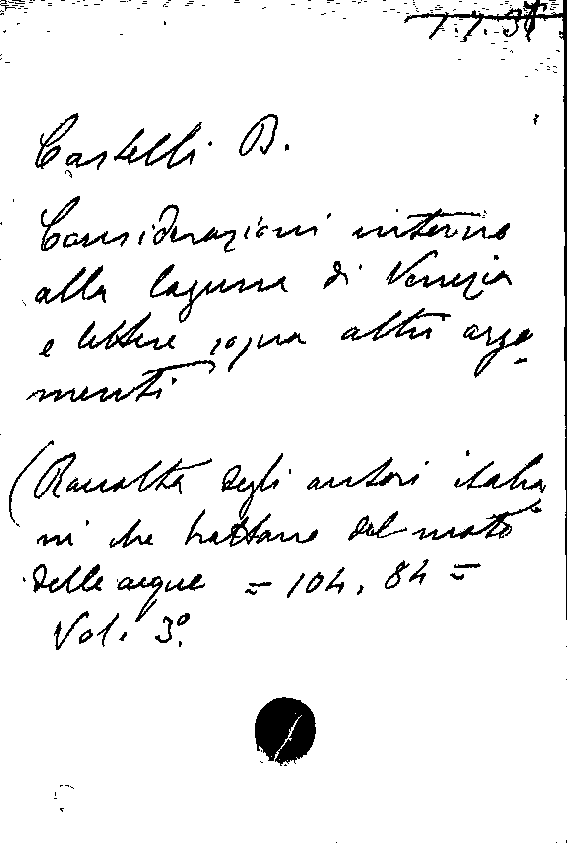 Castelli B.
Considerazioni intorno
alla laguna di Venezia
e lettere sopra altri argo-
menti
(Raccolta degli autori italia
ni che trattano del moto
delle acque = 104. 84 =
Vol. 3º.